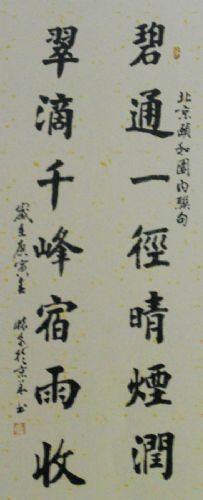 碧通一徑晴煙潤
北京頤和園内聯句
翠滴千峰宿雨收
歲在庚寅春
於京華書